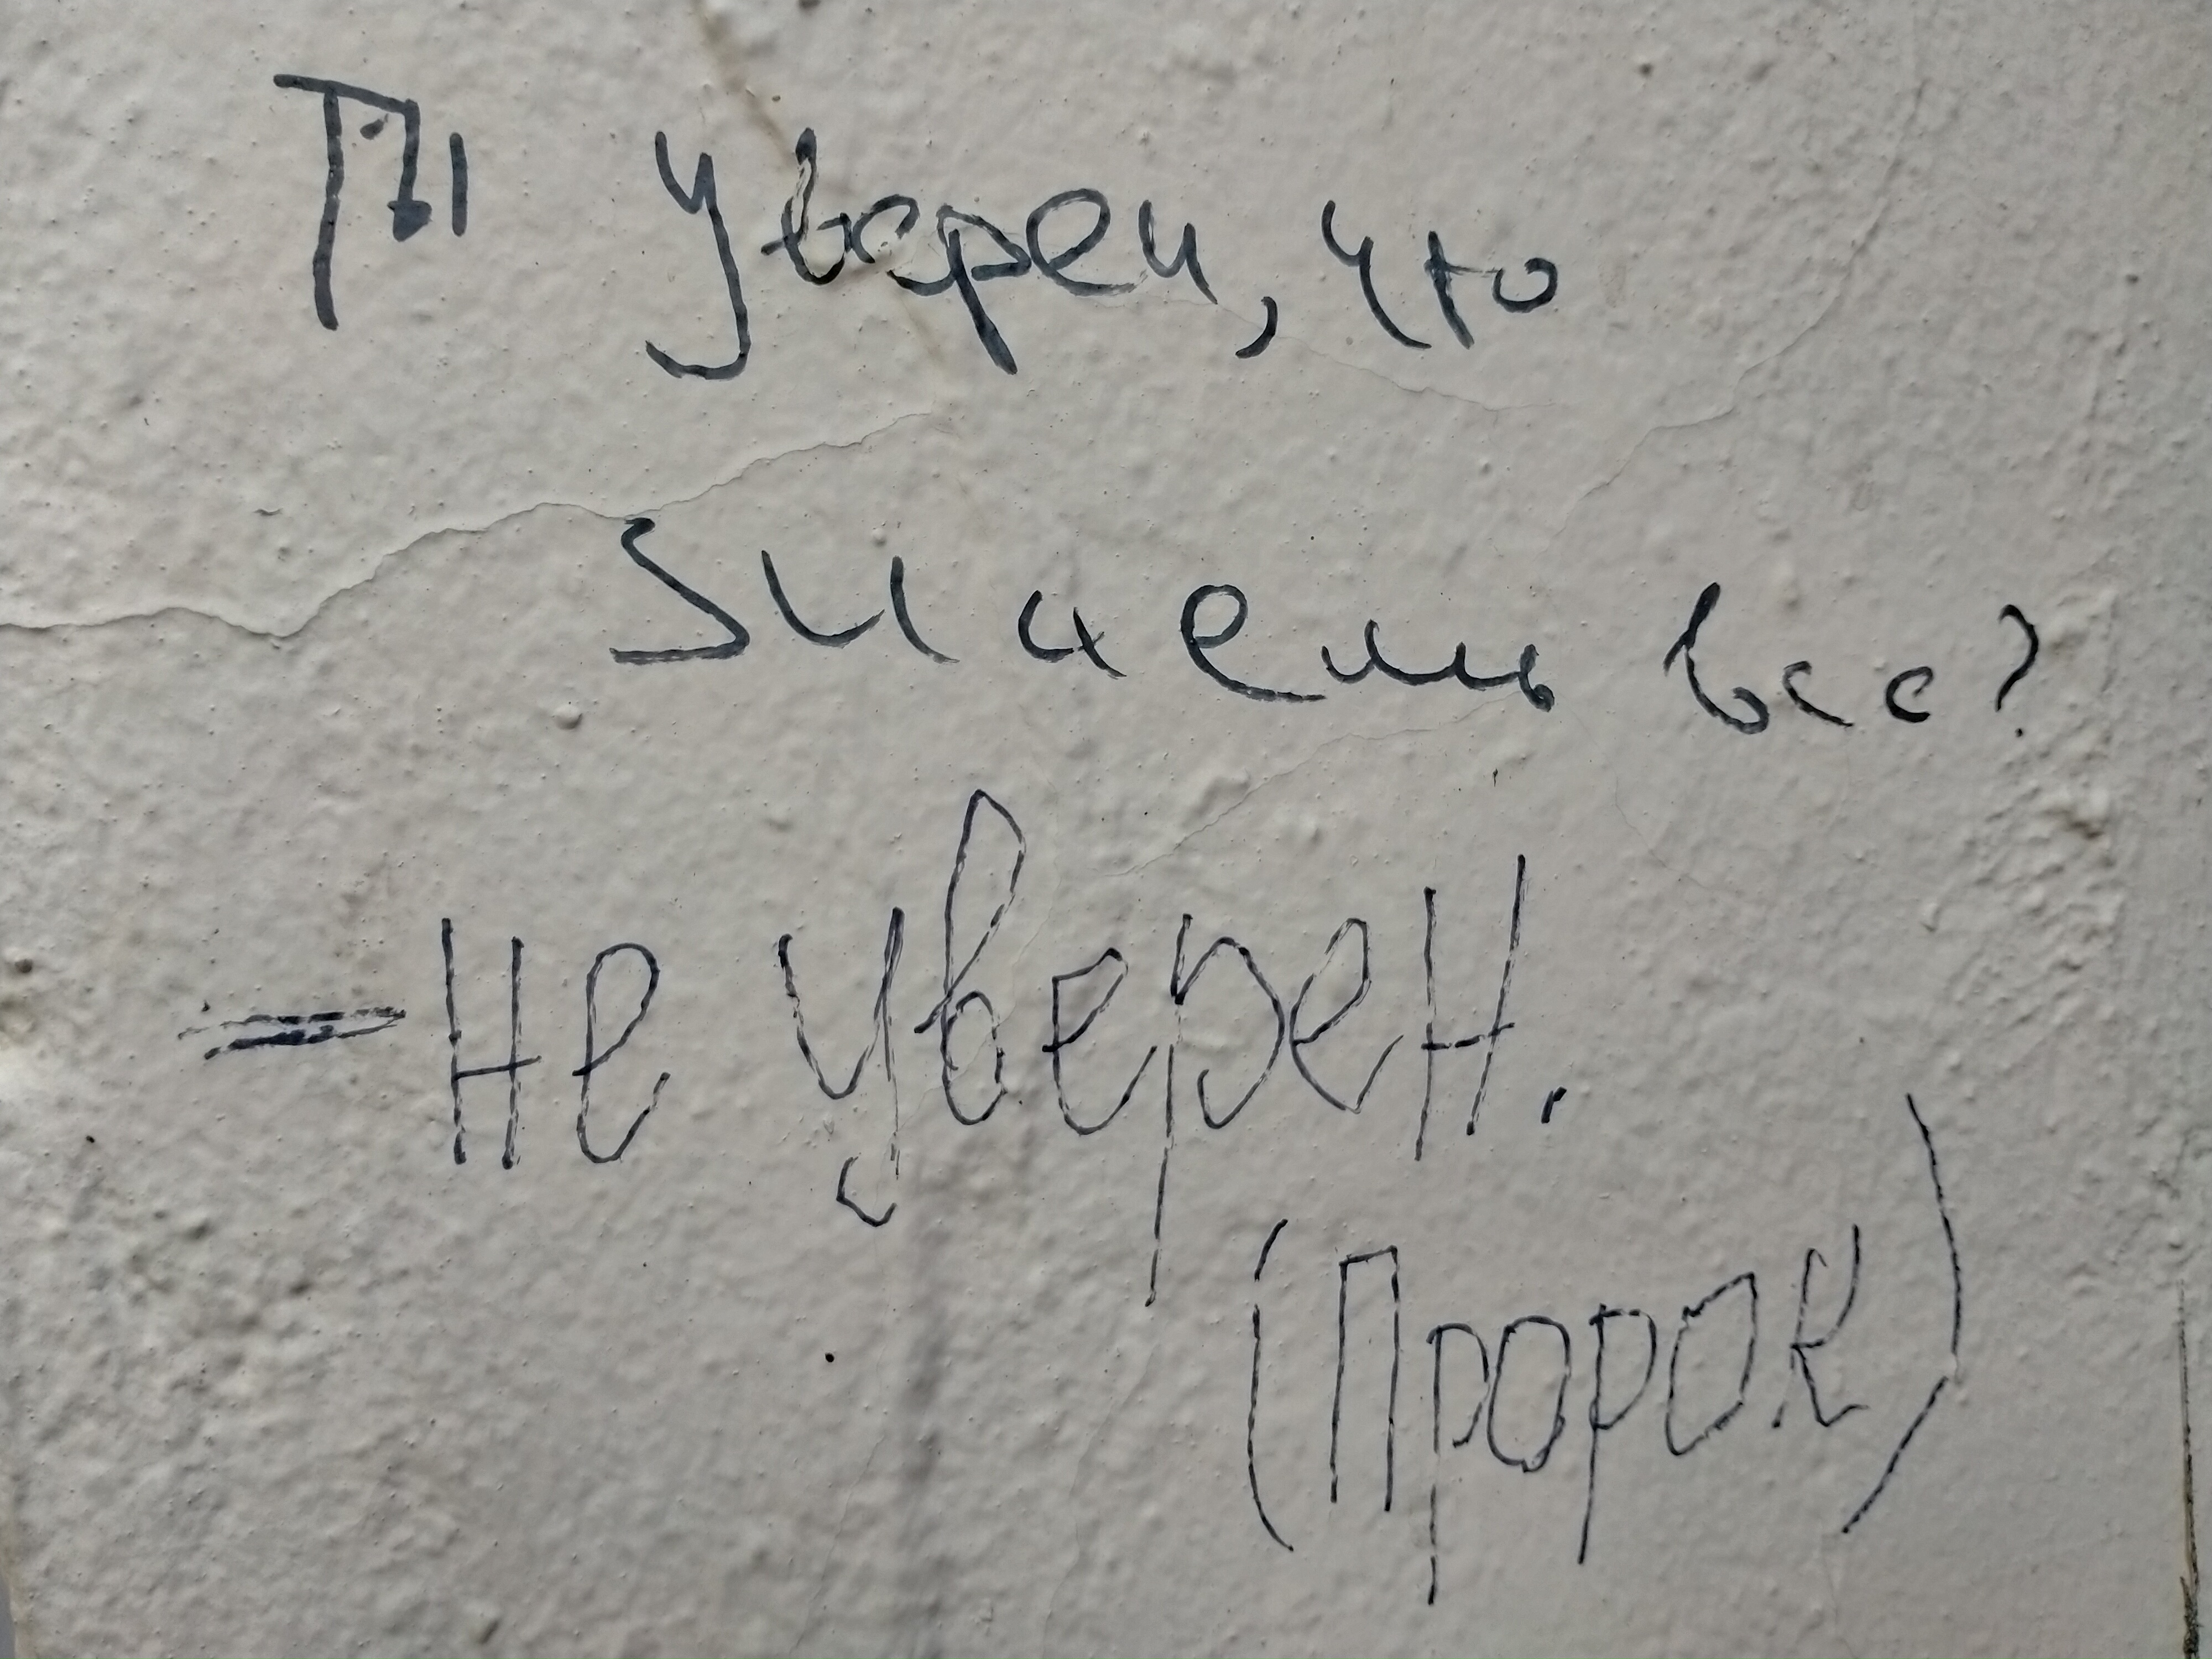 Ты уверен, что
знаешь все?
- Не уверен.
(Пророк)